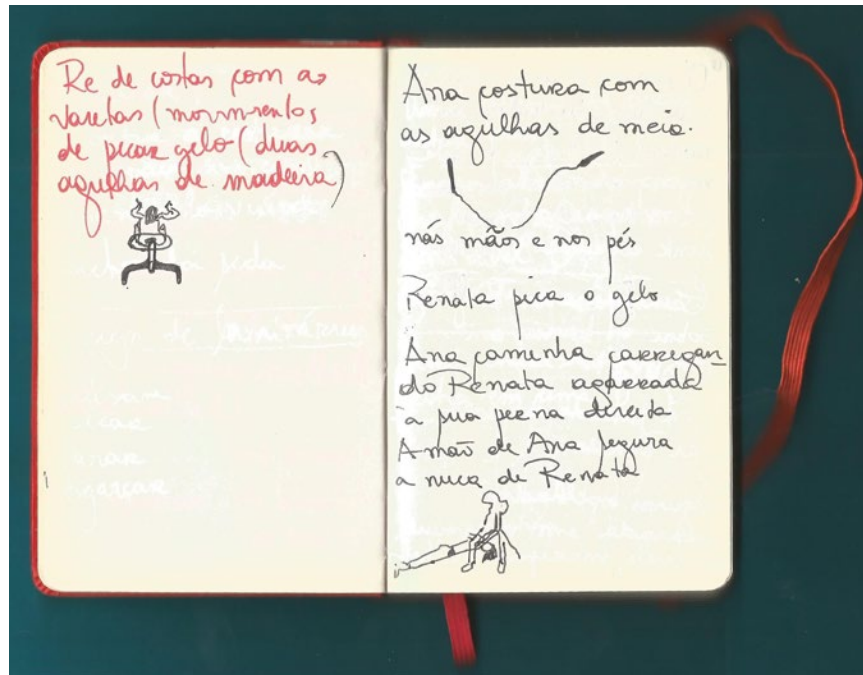 Re de costas com as
varetas (movimentos
de picar gelo (duas
agulhas de madeira)
Ana costura com
as agulhas de meia.
nás mãos e nos pés
Renata pica o gelo
Ana caminha carregan
do Renata agarrada
à sua perna direita
A mão de Ana segura
a nuca de Renata